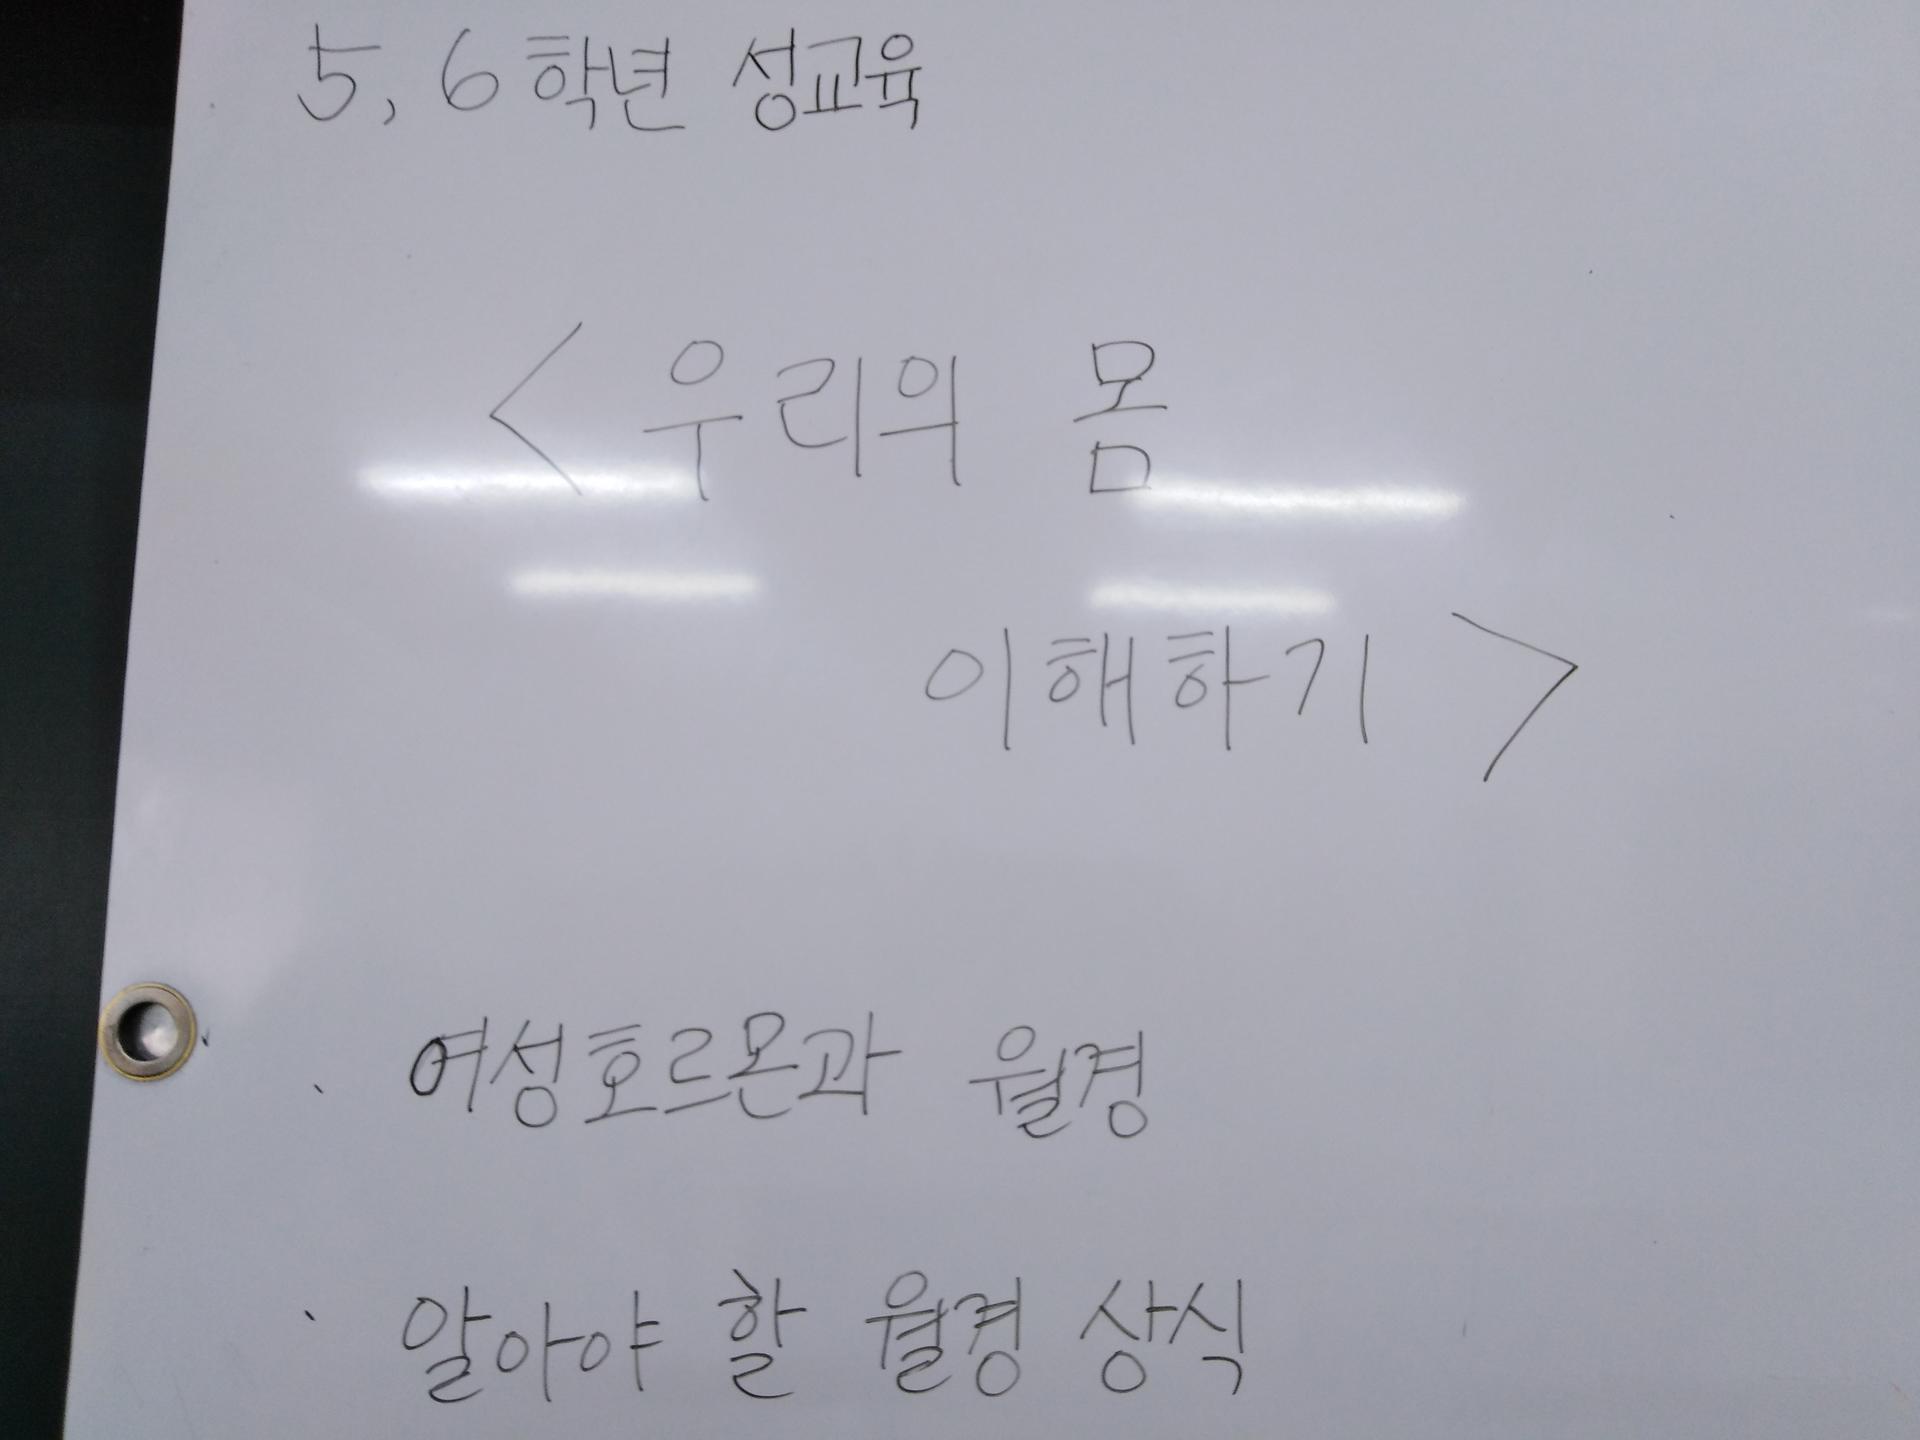 5, 6학년 성교육
<우리의 몸
이해하기>
· 여성호르몬과 월경
· 알아야 할 월경 상식